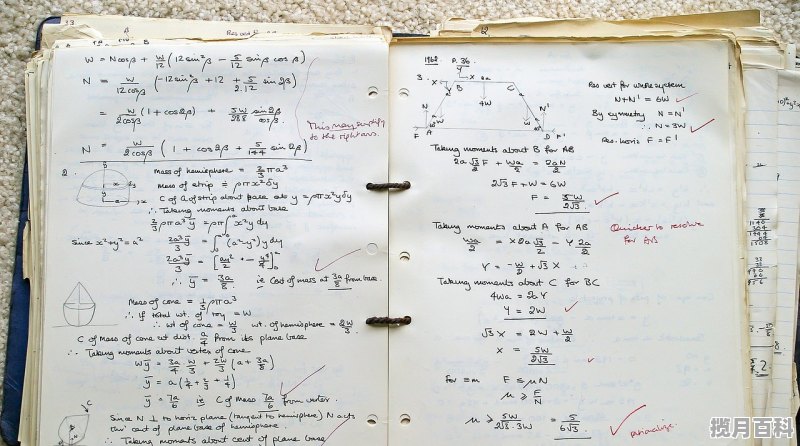 33
W = Ncosβ + W/12 (12sin²β - 5/12 sinβ cosβ)
N = W/12cosβ (-12sin²β + 12 + 5/2.12 sin2β)
= W/2cosβ (1 + cos2β) + 5W/288 sin2β/cosβ.
This may simplify
to the right ans.
N = W/2cosβ (1 + cos2β + 5/144 sin2β)
2.
Mass of hemisphere = 2/3 πa³
Mass of strip = ρπx²δy
C of G of strip about base as y = ρπx²yδy
∴ Taking moments about base
2/3 ρπa³ȳ = ρπ∫x²y dy
since x²+y² = a²
2a³ȳ/3 = ∫(a²-y²)y dy
2a³ȳ/3 = [ay²/2 - y⁴/4]
∴ ȳ = 3a/8 ie Cent of mass at 3a/8 from base.
Mass of cone = 1/3 ρπa³
∴ If total wt. of toy = W
∴ wt of cone = W/3 wt. of hemisphere = 2W/3
C of Mass of cone at dist. a/4 from its plane base
∴ Taking moments about vertex of cone
Wȳ = 3a/4 W/3 + 2W/3 (a + 3a/8)
ȳ = a(1/4 + 2/3 + 1/4)
ȳ = 7a/6 ie C of Mass 7a/6 from vertex.
Since N ⊥ to horiz plane (tangent to hemisphere) N acts
thr' cent of plane base of hemisphere.
∴ Taking moments about cent of plane base
1962 P. 36
3.
X X 2a
B C
4W
N N'
W W
F A D F'
Res vert for whole system
N+N' = 6W
By symmetry N = N'
∴ N = 3W
Res. horiz F = F'
Taking moments about B for AB
2a√3/2 F + Wa/2 = 2aN/2
2√3F + W = 6W
F = 5W/2√3
Taking moments about A for AB
Quicker to resolve
for AB
Wa/2 = X2a√3/2 - Y 2a/2
Y = -W/2 + √3 X
Taking moments about C for BC
4Wa = 2aY
Y = 2W
√3X = 2W + W/2
X = 5W/2√3
for =m F ≤ μN
μ ≥ F/N
μ ≥ 5W/2√3.3W = 5/6√3
rationalize.
揽月百科